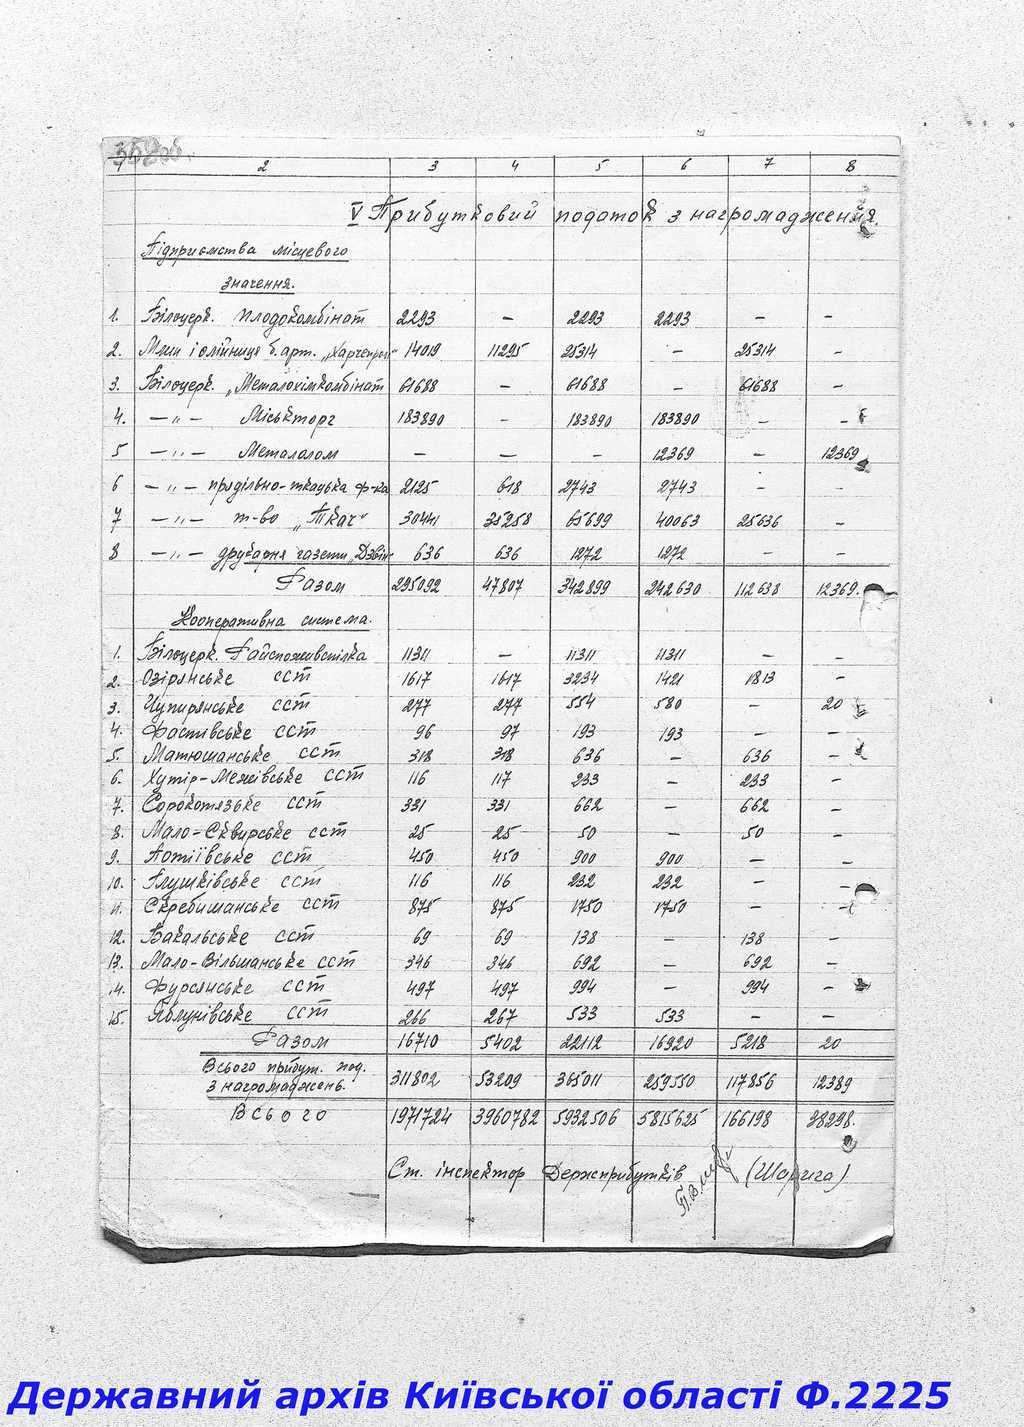 352об.
1 2 3 4 5 6 7 8
V Прибутковий податок з нагромадження.
Підприємства місцевого
значення.
1. Білоцерк. Плодокомбінат 2293 — 2293 2293 — —
2. Млин і олійниця б. арт. „Харчепром" 14019 11295 25314 — 25314 —
3. Білоцерк. „Металохімкомбінат 61688 — 61688 — 61688 —
4. —„— Міськторг 183890 — 183890 183890 — —
5 —„— Металолом — — — 12369 — 12369
6 —„— прядільно-ткацька ф-ка 2125 618 2743 2743 — —
7 —„— т-во „Ткач" 30441 35258 65699 40063 25636 —
8 —„— друкарня газети „Дзвін 636 636 1272 1272 — —
Разом 295092 47807 342899 242630 112638 12369.
Кооперативна система.
1. Білоцерк. Райспоживспілка 11311 — 11311 11311 — —
2. Озірянське ССТ 1617 1617 3234 1421 1813 —
3. Чупирянське ССТ 277 277 554 580 — 20
4. Фастівське ССТ 96 97 193 193 — —
5. Матюшанське ССТ 318 318 636 — 636 —
6. Хутір-Межівське ССТ 116 117 233 — 233 —
7. Сорокотязьке ССТ 331 331 662 — 662 —
8. Мало-Сквирське ССТ 25 25 50 — 50 —
9. Потіївське ССТ 450 450 900 900 — —
10. Глушківське ССТ 116 116 232 232 — —
11. Скребишанське ССТ 875 875 1750 1750 — —
12. Бакальське ССТ 69 69 138 — 138 —
13. Мало-Вільшанське ССТ 346 346 692 — 692 —
14. Фурсянське ССТ 497 497 994 — 994 —
15. Яблунівське ССТ 266 267 533 533 — —
Разом 16710 5402 22112 16920 5218 20
Всього прибут. под.
з нагромаджень. 311802 53209 365011 259550 117856 12389
Всього 1971724 3960782 5932506 5815625 166198 38298.
Ст. інспектор Держприбутків (Шарига)
Державний архів Київської області Ф.2225